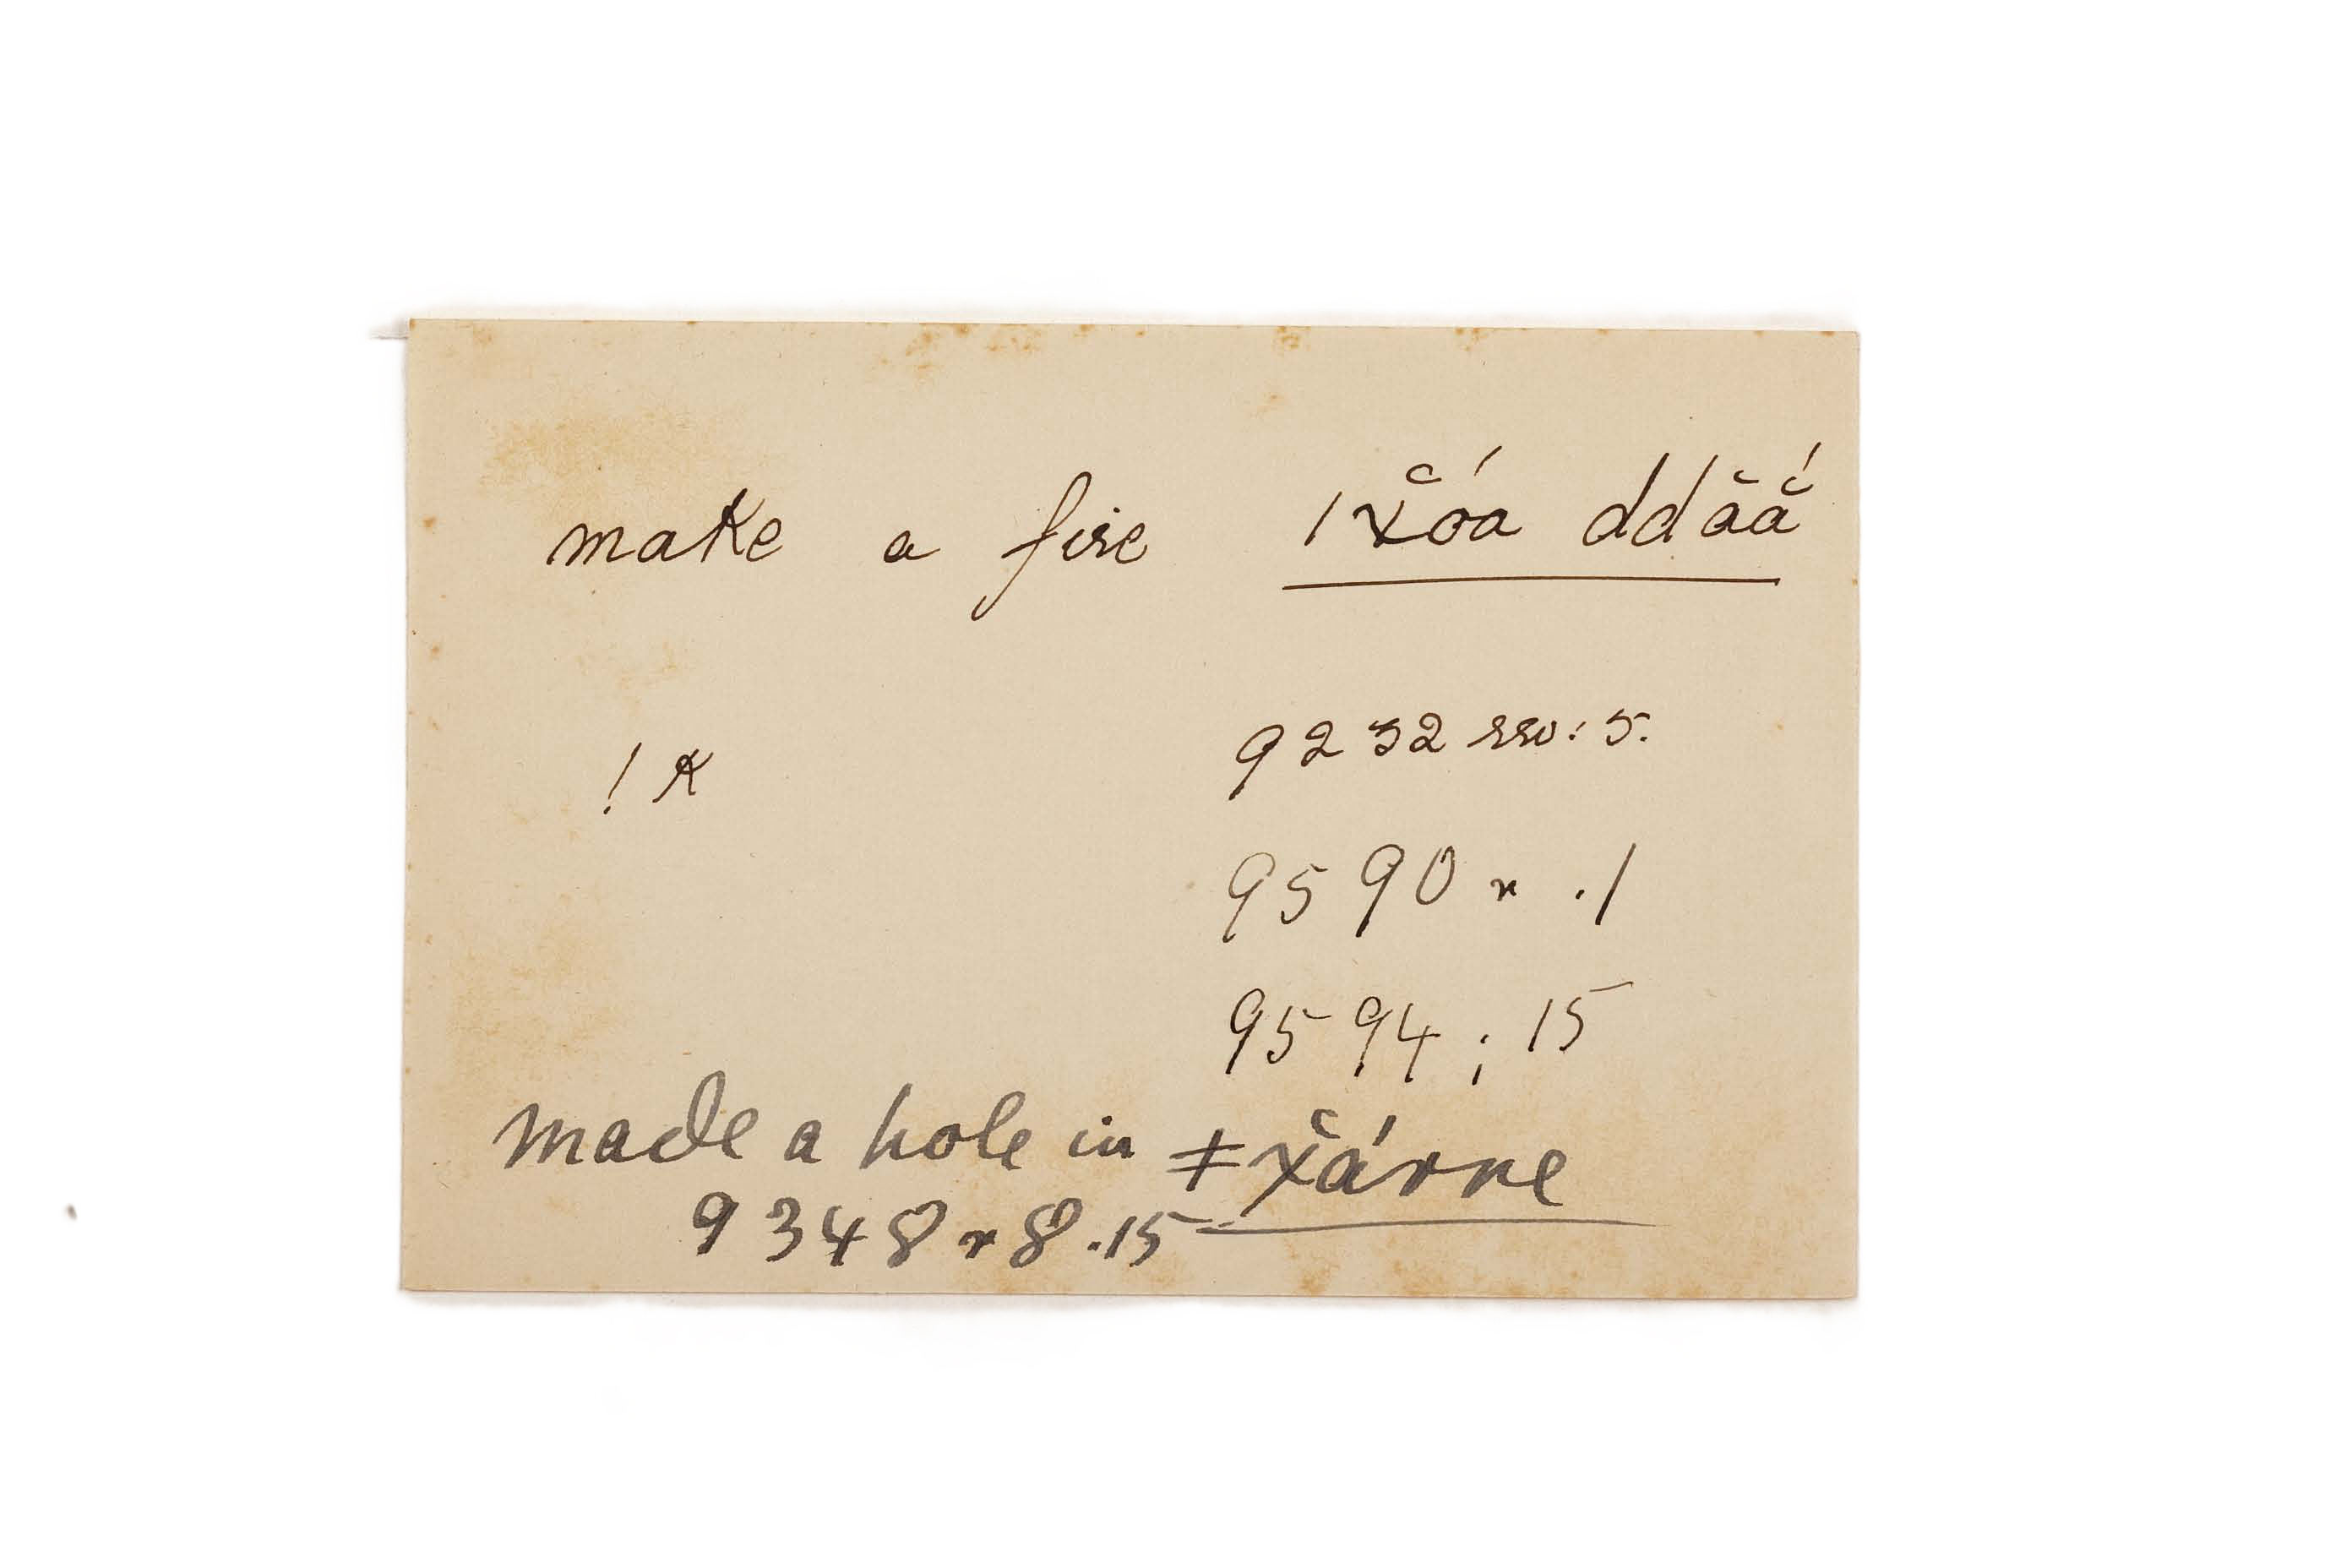 make a fire ǀx̆óa ddā̆ā̆́
! k
9232 rev: 5.
9590 r .1
9594 ; 15
made a hole in ǂx̆árre
9348 r 8 .15